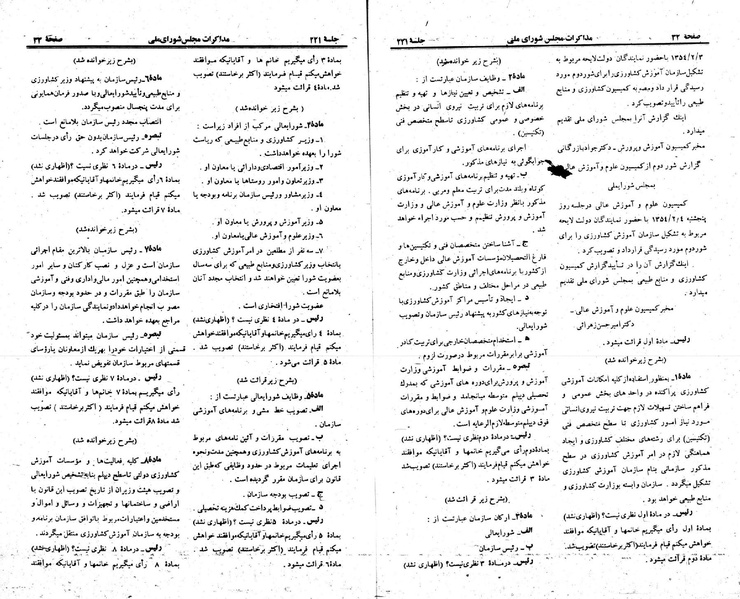 صفحهٔ ۳۲
مذاکرات مجلس شورای ملی
جلسهٔ ۲۲۱
۱۳۵۴/۲/۳ با حضور نمایندگان دولت لایحه مربوط به
تشکیل سازمان آموزش کشاورزی را برای شور دوم مورد
رسیدگی قرار داد و مصوبه کمیسیون کشاورزی و منابع
طبیعی را تأیید و تصویب کرد.
اینک گزارش آنرا بمجلس شورای ملی تقدیم
میدارد.
مخبر کمیسیون آموزش و پرورش ـ دکتر جواد بازرگانی
گزارش شور دوم از کمیسیون علوم و آموزش عالی
بمجلس شورایملی
کمیسیون علوم و آموزش عالی در جلسه روز
پنجشنبه ۱۳۵۴/۲/۴ با حضور نمایندگان دولت لایحه
مربوط به تشکیل سازمان آموزش کشاورزی را برای
شور دوم مورد رسیدگی قرارداد و تصویب کرد.
اینک گزارش آن را در تأیید گزارش کمیسیون
کشاورزی و منابع طبیعی بمجلس شورای ملی تقدیم
میدارد.
مخبر کمیسیون علوم و آموزش عالی ـ
دکتر امیر حسن زهرائی
رئیس ـ ماده اول قرائت میشود.
(بشرح زیر خوانده شد)
ماده۱ـ بمنظور استفاده از کلیه امکانات آموزشی
کشاورزی پراکنده در واحد های بخش عمومی و
فراهم ساختن تسهیلات لازم جهت تربیت نیروی انسانی
مورد نیاز امور کشاورزی تا سطح متخصص فنی
(تکنیسین) برای رشته‌های مختلف کشاورزی و ایجاد
هماهنگی لازم در امر آموزش کشاورزی در سطح
مذکور سازمانی بنام سازمان آموزش کشاورزی
تشکیل میگردد. سازمان وابسته بوزارت کشاورزی و
منابع طبیعی خواهد بود.
رئیس ـ در ماده اول نظری نیست؟ (اظهاری نشد)
بمادهٔ اول رأی میگیریم خانمها و آقایانیکه موافقند
خواهش میکنم قیام فرمایند (اکثر برخاستند) تصویب شد.
مادهٔ دوم قرائت میشود.
(بشرح زیر خوانده شد)
ماده۲ـ وظایف سازمان عبارتست از:
الف ـ تشخیص و تعیین نیازها و تهیه و تنظیم
برنامه‌های لازم برای تربیت نیروی انسانی در بخش
خصوصی و عمومی کشاورزی تا سطح متخصص فنی
(تکنیسین)
اجرای برنامه‌های آموزشی و کارآموزی برای
جوابگوئی به نیازهای مذکور.
ب ـ تهیه و تنظیم برنامه‌های آموزشی و کارآموزی
کوتاه و بلند مدت برای تربیت معلم و مربی. برنامه‌های
مذکور با نظر وزارت علوم و آموزش عالی و وزارت
آموزش و پرورش تنظیم و حسب مورد اجراء خواهد
شد.
ج ـ آشنا ساختن متخصصان فنی و تکنیسین‌ها و
فارغ التحصیلان مؤسسات آموزش عالی داخل و خارج
از کشور با برنامه‌های اجرائی وزارت کشاورزی و منابع
طبیعی در مراحل مختلف و مناطق کشور.
د ـ ایجاد و تأسیس مراکز آموزش کشاورزی با
توجه به نیازهای کشور به پیشنهاد رئیس سازمان و تصویب
شورایعالی.
ه ـ استخدام متخصصان خارجی برای تربیت کادر
آموزشی برابر مقررات مربوط در صورت لزوم.
تبصره ـ مقررات و ضوابط آموزشی وزارت
آموزش و پرورش برای دوره های آموزشی که بمدرک
تحصیلی دیپلم متوسطه میانجامد و ضوابط و مقررات
آموزشی وزارت علوم و آموزش عالی برای دوره‌های
فوق دیپلم متوسطه لازم الرعایه است.
رئیس ـ در مادهٔ دوم نظری نیست؟ (اظهاری نشد)
بمادهٔ دوم رأی میگیریم خانمها و آقایانیکه موافقند خواهش
میکنم قیام فرمایند (اکثر برخاستند) تصویب شد
مادهٔ ۳ قرائت میشود.
(بشرح زیر قرائت شد)
ماده۳ـ ارکان سازمان عبارتست از:
الف ـ شورایعالی
ب ـ رئیس سازمان
رئیس ـ در مادهٔ ۳ نظری نیست؟ (اظهاری نشد)
جلسهٔ ۲۲۱
مذاکرات مجلس شورای ملی
صفحهٔ ۳۳
بمادهٔ ۳ رأی میگیریم خانم ها و آقایانیکه موافقند
خواهش میکنم قیام فرمایند (اکثر برخاستند) تصویب
شد. مادهٔ ۴ قرائت میشود.
(بشرح زیر خوانده شد)
ماده۴ـ شورایعالی مرکب از افراد زیر است:
۱ـ وزیر کشاورزی و منابع طبیعی که ریاست
شورا را بعهده خواهد داشت.
۲ـ وزیر امور اقتصادی و دارائی یا معاون او.
۳ـ وزیر تعاون و امور روستاها یا معاون او.
۴ـ وزیر مشاور و رئیس سازمان برنامه و بودجه یا
معاون او.
۵ـ وزیر آموزش و پرورش یا معاون او.
۶ـ وزیر علوم و آموزش عالی یا معاون او.
۷ـ سه نفر از مطلعین در امر آموزش کشاورزی
بانتخاب وزیر کشاورزی و منابع طبیعی که برای سه سال
بعضویت شورا تعیین خواهند شد و انتخاب مجدد آنان
بلامانع است.
عضویت شورا افتخاری است.
رئیس ـ در مادهٔ ۴ نظری نیست؟ (اظهاری نشد)
بمادهٔ ۴ رأی میگیریم خانمها و آقایانیکه موافقند خواهش
میکنم قیام فرمایند (اکثر برخاستند) تصویب شد.
مادهٔ ۵ قرائت می‌شود.
(بشرح زیر قرائت شد)
ماده۵ـ وظایف شورایعالی عبارتست از:
الف ـ تصویب خط مشی و برنامه‌های آموزشی
سازمان.
ب ـ تصویب مقررات و آئین نامه‌های مربوط
به برنامه‌های آموزش کشاورزی و همچنین مدت و نحوه
اجرای تعلیمات مربوط در حدود وظایفی که طبق این
قانون برای سازمان مقرر گردیده است.
ج ـ تصویب بودجه سازمان.
د ـ تصویب ضوابط پرداخت کمک هزینه تحصیلی.
رئیس ـ در مادهٔ ۵ نظری نیست؟ (اظهاری نشد)
بمادهٔ ۵ رأی میگیریم خانمها و آقایانیکه موافقند خواهش
میکنم قیام فرمایند (اکثر برخاستند) تصویب شد
مادهٔ ۶ قرائت میشود.
(بشرح زیر خوانده شد)
ماده۶ـ رئیس سازمان به پیشنهاد وزیر کشاورزی
و منابع طبیعی و تأیید شورایعالی و با صدور فرمان همایونی
برای مدت پنجسال منصوب میگردد.
انتصاب مجدد رئیس سازمان بلامانع است.
تبصره ـ رئیس سازمان بدون حق رأی در جلسات
شورایعالی شرکت خواهد کرد.
رئیس ـ در مادهٔ ۶ نظری نیست؟ (اظهاری نشد)
بمادهٔ ۶ رأی میگیریم خانمها و آقایانیکه موافقند خواهش
میکنم قیام فرمایند (اکثر برخاستند) تصویب شد
مادهٔ ۷ قرائت میشود.
(بشرح زیر خوانده شد)
ماده۷ـ رئیس سازمان بالاترین مقام اجرائی
سازمان است و عزل و نصب کارکنان و سایر امور
استخدامی و همچنین امور مالی و اداری و فنی و آموزشی
سازمان را طبق مقررات و در حدود بودجه و سازمان
مصوب انجام خواهد داد و نمایندگی سازمان را در کلیه
مراجع بعهده خواهد داشت.
تبصره ـ رئیس سازمان میتواند بمسئولیت خود
قسمتی از اختیارات خود را بهریک از معاونان یا رؤسای
قسمتهای مربوط سازمان تفویض نماید.
رئیس ـ در مادهٔ ۷ نظری نیست؟ (اظهاری نشد)
رأی میگیریم بمادهٔ ۷ خانمها و آقایانیکه موافقند
خواهش میکنم قیام فرمایند (اکثر برخاستند) تصویب
شد مادهٔ ۸ قرائت میشود.
(بشرح زیر خوانده شد)
ماده۸ـ کلیه فعالیت‌ها و مؤسسات آموزش
کشاورزی دولتی تا سطح دیپلم بنا به تشخیص شورایعالی
و تصویب هیئت وزیران از تاریخ تصویب این قانون با
اراضی و ساختمانها و تجهیزات و وسائل و اموال و
مستخدمین و اعتبارات مربوط با توافق سازمان برنامه و
بودجه به سازمان آموزش کشاورزی منتقل میگردند.
رئیس ـ در مادهٔ ۸ نظری نیست؟ (اظهاری نشد)
رأی میگیریم خانمها و آقایانیکه موافقند بمادهٔ ۸